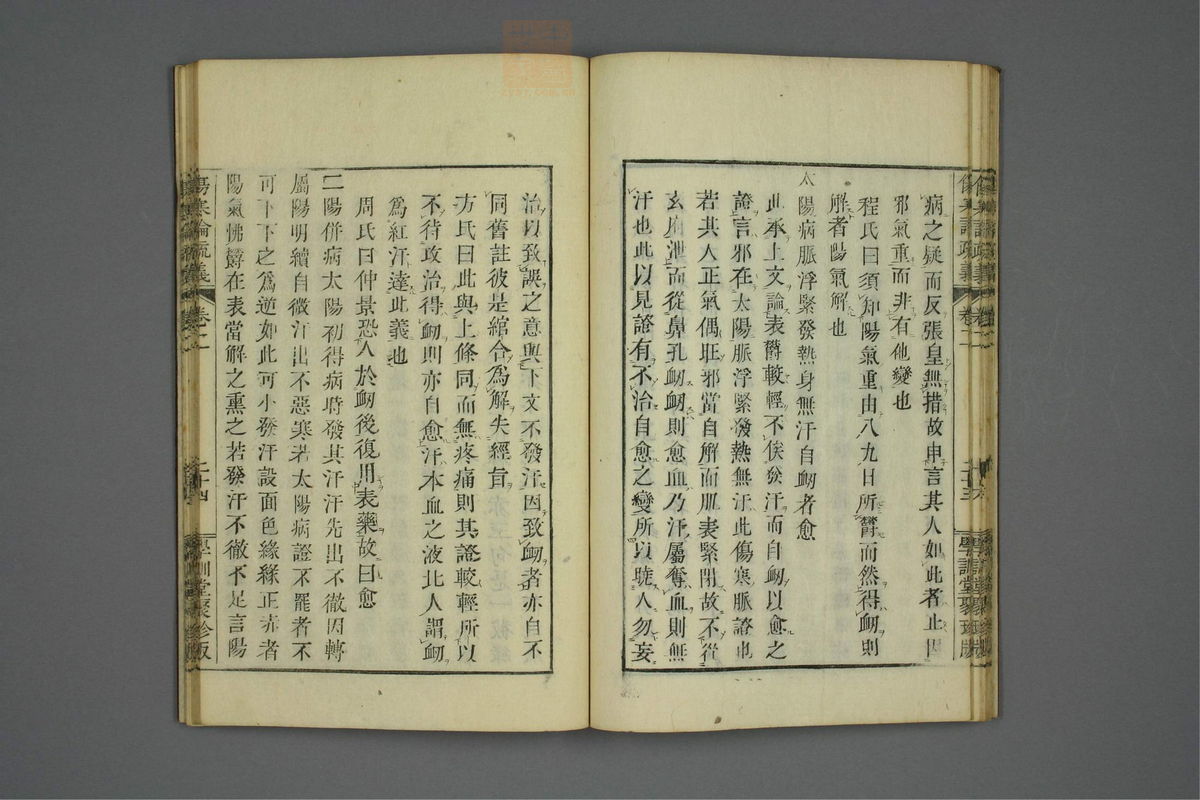 病之疑而反張皇無措故申言其人如此者止因
邪氣重而非有他變也
程氏曰須知陽氣重由八九日所鬱而然得衂則
解者陽氣解也
太陽病脈浮緊發熱身無汗自衂者愈
此承上文論表鬱較輕不俟發汗而自衂以愈之
證言邪在太陽脈浮緊發熱無汗此傷寒脈證也
若其人正氣偶旺邪當自解而肌表緊閉故不從
玄府泄而從鼻孔衂衂則愈血乃汗屬奪血則無
汗也此以見證有不治自愈之變所以曉人勿妄
治以致誤之意與下文不發汗因致衂者亦自不
同舊註彼是綰合為解失經旨
方氏曰此與上條同而無疼痛則其證較輕所以
不待攻治得衂則亦自愈汗本血之液北人謂衂
為紅汗達此義也
周氏曰仲景恐人於衂後復用表藥故曰愈
二陽併病太陽初得病時發其汗汗先出不徹因轉
屬陽明續自微汗出不惡寒若太陽病證不罷者不
可下下之為逆如此可小發汗設面色緣緣正赤者
陽氣怫鬱在表當解之熏之若發汗不徹不足言陽
傷寒論疏義 卷二 二十四 學訓堂聚珍版